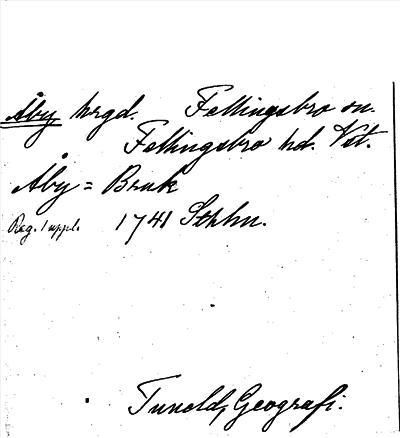 Åby hrgd. Fellingsbro sn.
Fellingsbro hd. Vst.
Åby = Bruk
Reg. 1 uppl. 1741 Sthlm.
Tuneld, Geografi.